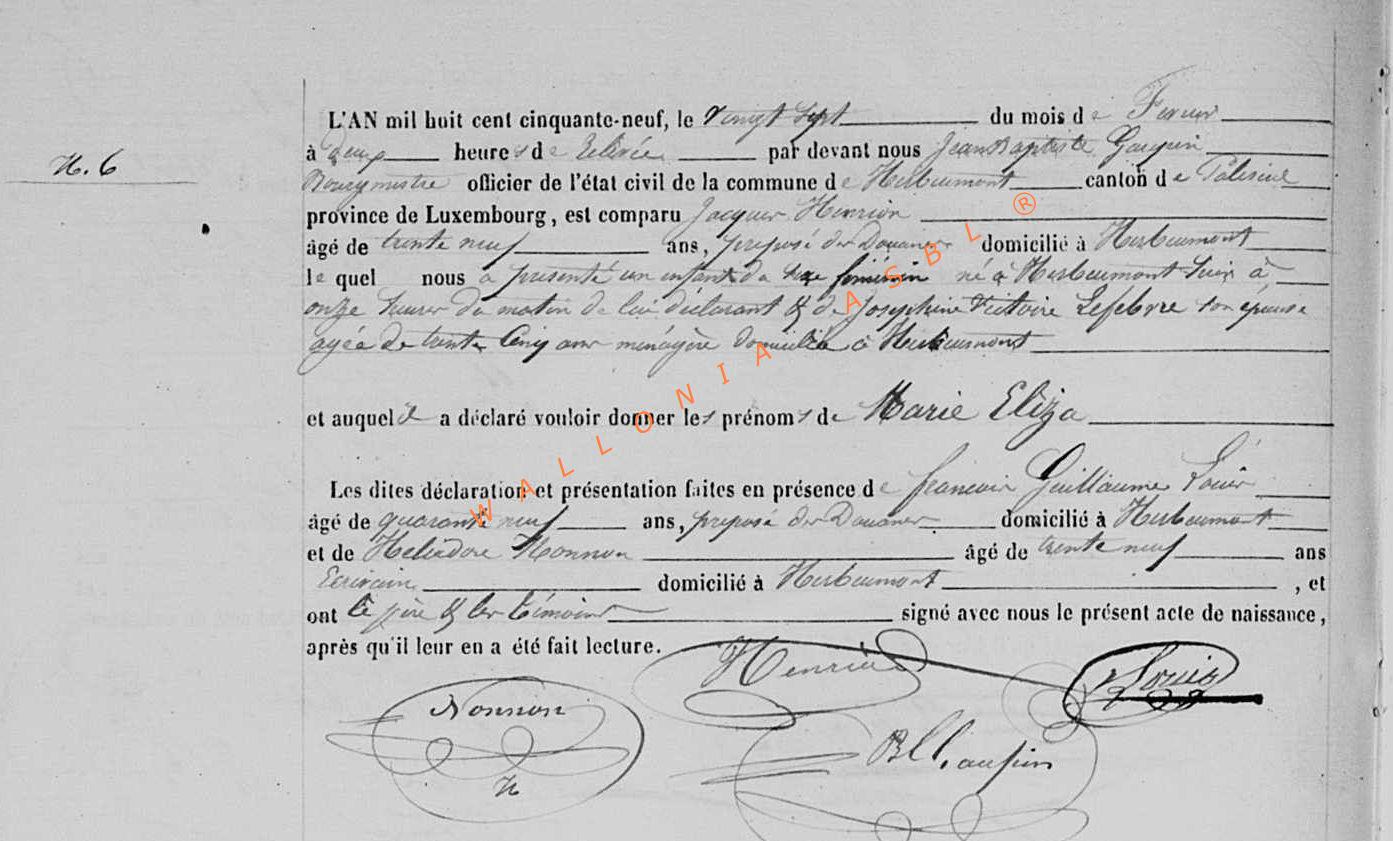 N. 6
L'AN mil huit cent cinquante-neuf, le vingt sept du mois de Fevrier
à deux heures de relevée par devant nous Jean Baptiste
Bourgmestre officier de l'état civil de la commune de Herbeumont canton de Paliseul
province de Luxembourg, est comparu Jacques Henrion
âgé de trente neuf ans, preposé des Douanes domicilié à Herbeumont
le quel nous a presenté un enfant du sexe féminin né à Herbeumont à
onze heures du matin de lui déclarant & de Josephine Victoire Lefebvre son épouse
agée de trente cinq ans ménagère domiciliée à Herbeumont
et auquel il a déclaré vouloir donner les prénoms de Marie Eliza
Les dites déclaration et présentation faites en présence de francois Guillaume Louis
âgé de quarante neuf ans, preposé des Douanes domicilié à Herbeumont
et de Heliodore Nonnon âgé de trente neuf ans
Ecrivain domicilié à Herbeumont, et
ont le père & les témoins signé avec nous le présent acte de naissance,
après qu'il leur en a été fait lecture.
Henrion
Louis
Nonnon
H
WALLONIA ASBL ®